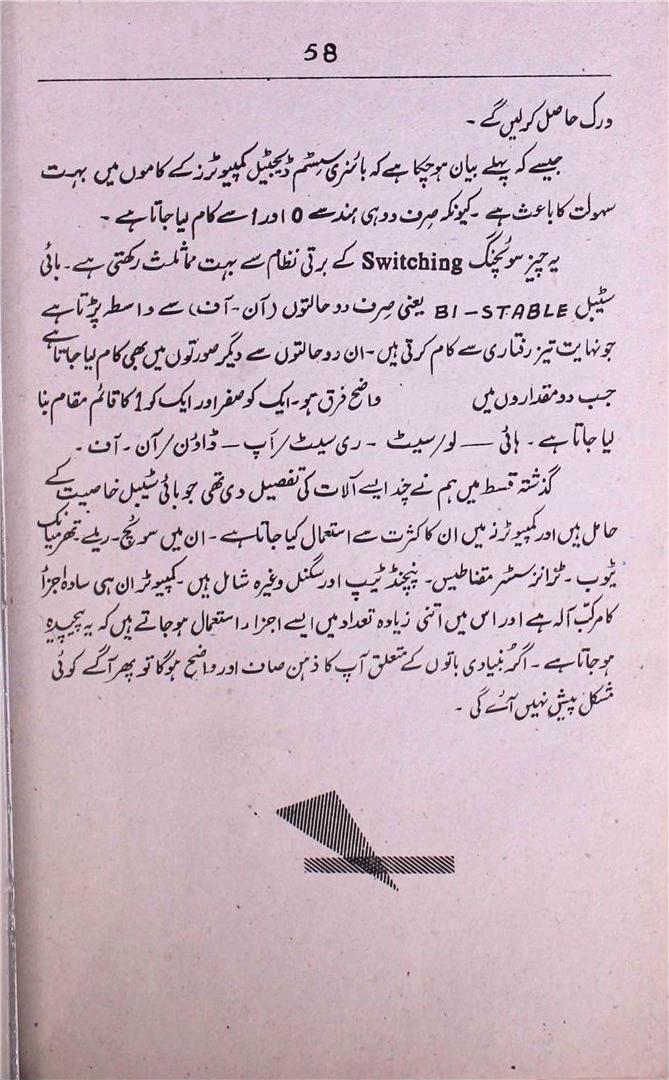 58
درک حاصل کرلیں گے ۔
جیسے کہ پہلے بیان ہوچکا ہے کہ بائنری سسٹم ڈیجٹیل کمپیوٹرز کے کاموں میں بہت
سہولت کا باعث ہے ۔ کیونکہ صرف دو ہی ہندسے 0 اور 1 سے کام لیا جاتا ہے ۔
یہ چیز سوئچنگ Switching کے برقی نظام سے بہت مماثلت رکھتی ہے ۔ بائی
سٹیبل BI-STABLE یعنی صرف دو حالتوں (آن - آف) سے واسطہ پڑتا ہے
جو نہایت تیز رفتاری سے کام کرتی ہیں ۔ ان دو حالتوں سے دیگر صورتوں میں بھی کام لیا جاتا ہے
جب دو مقداروں میں واضح فرق ہو ۔ ایک کو صفر اور ایک کو 1 کا قائم مقام بنا
لیا جاتا ہے ۔ ہائی — لو/سیٹ ۔ ری سیٹ/اَپ — ڈاؤن/آن ۔ آف ۔
گذشتہ قسط میں ہم نے چند ایسے آلات کی تفصیل دی تھی جو بائی سٹیبل خاصیت کے
حامل ہیں اور کمپیوٹرز میں ان کا کثرت سے استعمال کیا جاتا ہے ۔ ان میں سوئچ ۔ ریلے تھرمیانک
ٹیوب ۔ ٹرانزسسٹر مقناطیس ۔ پنچنڈ ٹیپ اور سگنل وغیرہ شامل ہیں ۔ کمپیوٹر ان ہی سادہ اجزأ
کا مرکب آلہ ہے اور اس میں اتنی زیادہ تعداد میں ایسے اجزاء استعمال ہوجاتے ہیں کہ یہ پیچیدہ
ہوجاتا ہے ۔ اگر بنیادی باتوں کے متعلق آپ کا ذہن صاف اور واضح ہوگا تو پھر آگے کوئی
مشکل پیش نہیں آئے گی ۔